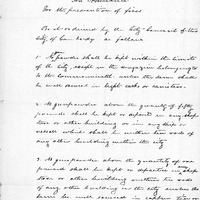 An Ordinance
For the prevention of fires
Be it ordained by the City Council of the
City of as follows
1 No powder shall be kept within the limits
of the City except in the magazine belonging to
to the Commonwealth unless the same shall
be well secured in tight casks or canisters
2 No gunpowder above the quantity of fifty
pounds shall be kept or in any shop
store or other building or in any ship or
vessel which shall be within two rods of
any other building within the city
3 No gunpowder above the quantity of
pounds shall be kept or in shop
store or other building within two rods
of any other building in the city unless the
same be well secured in copper tin or